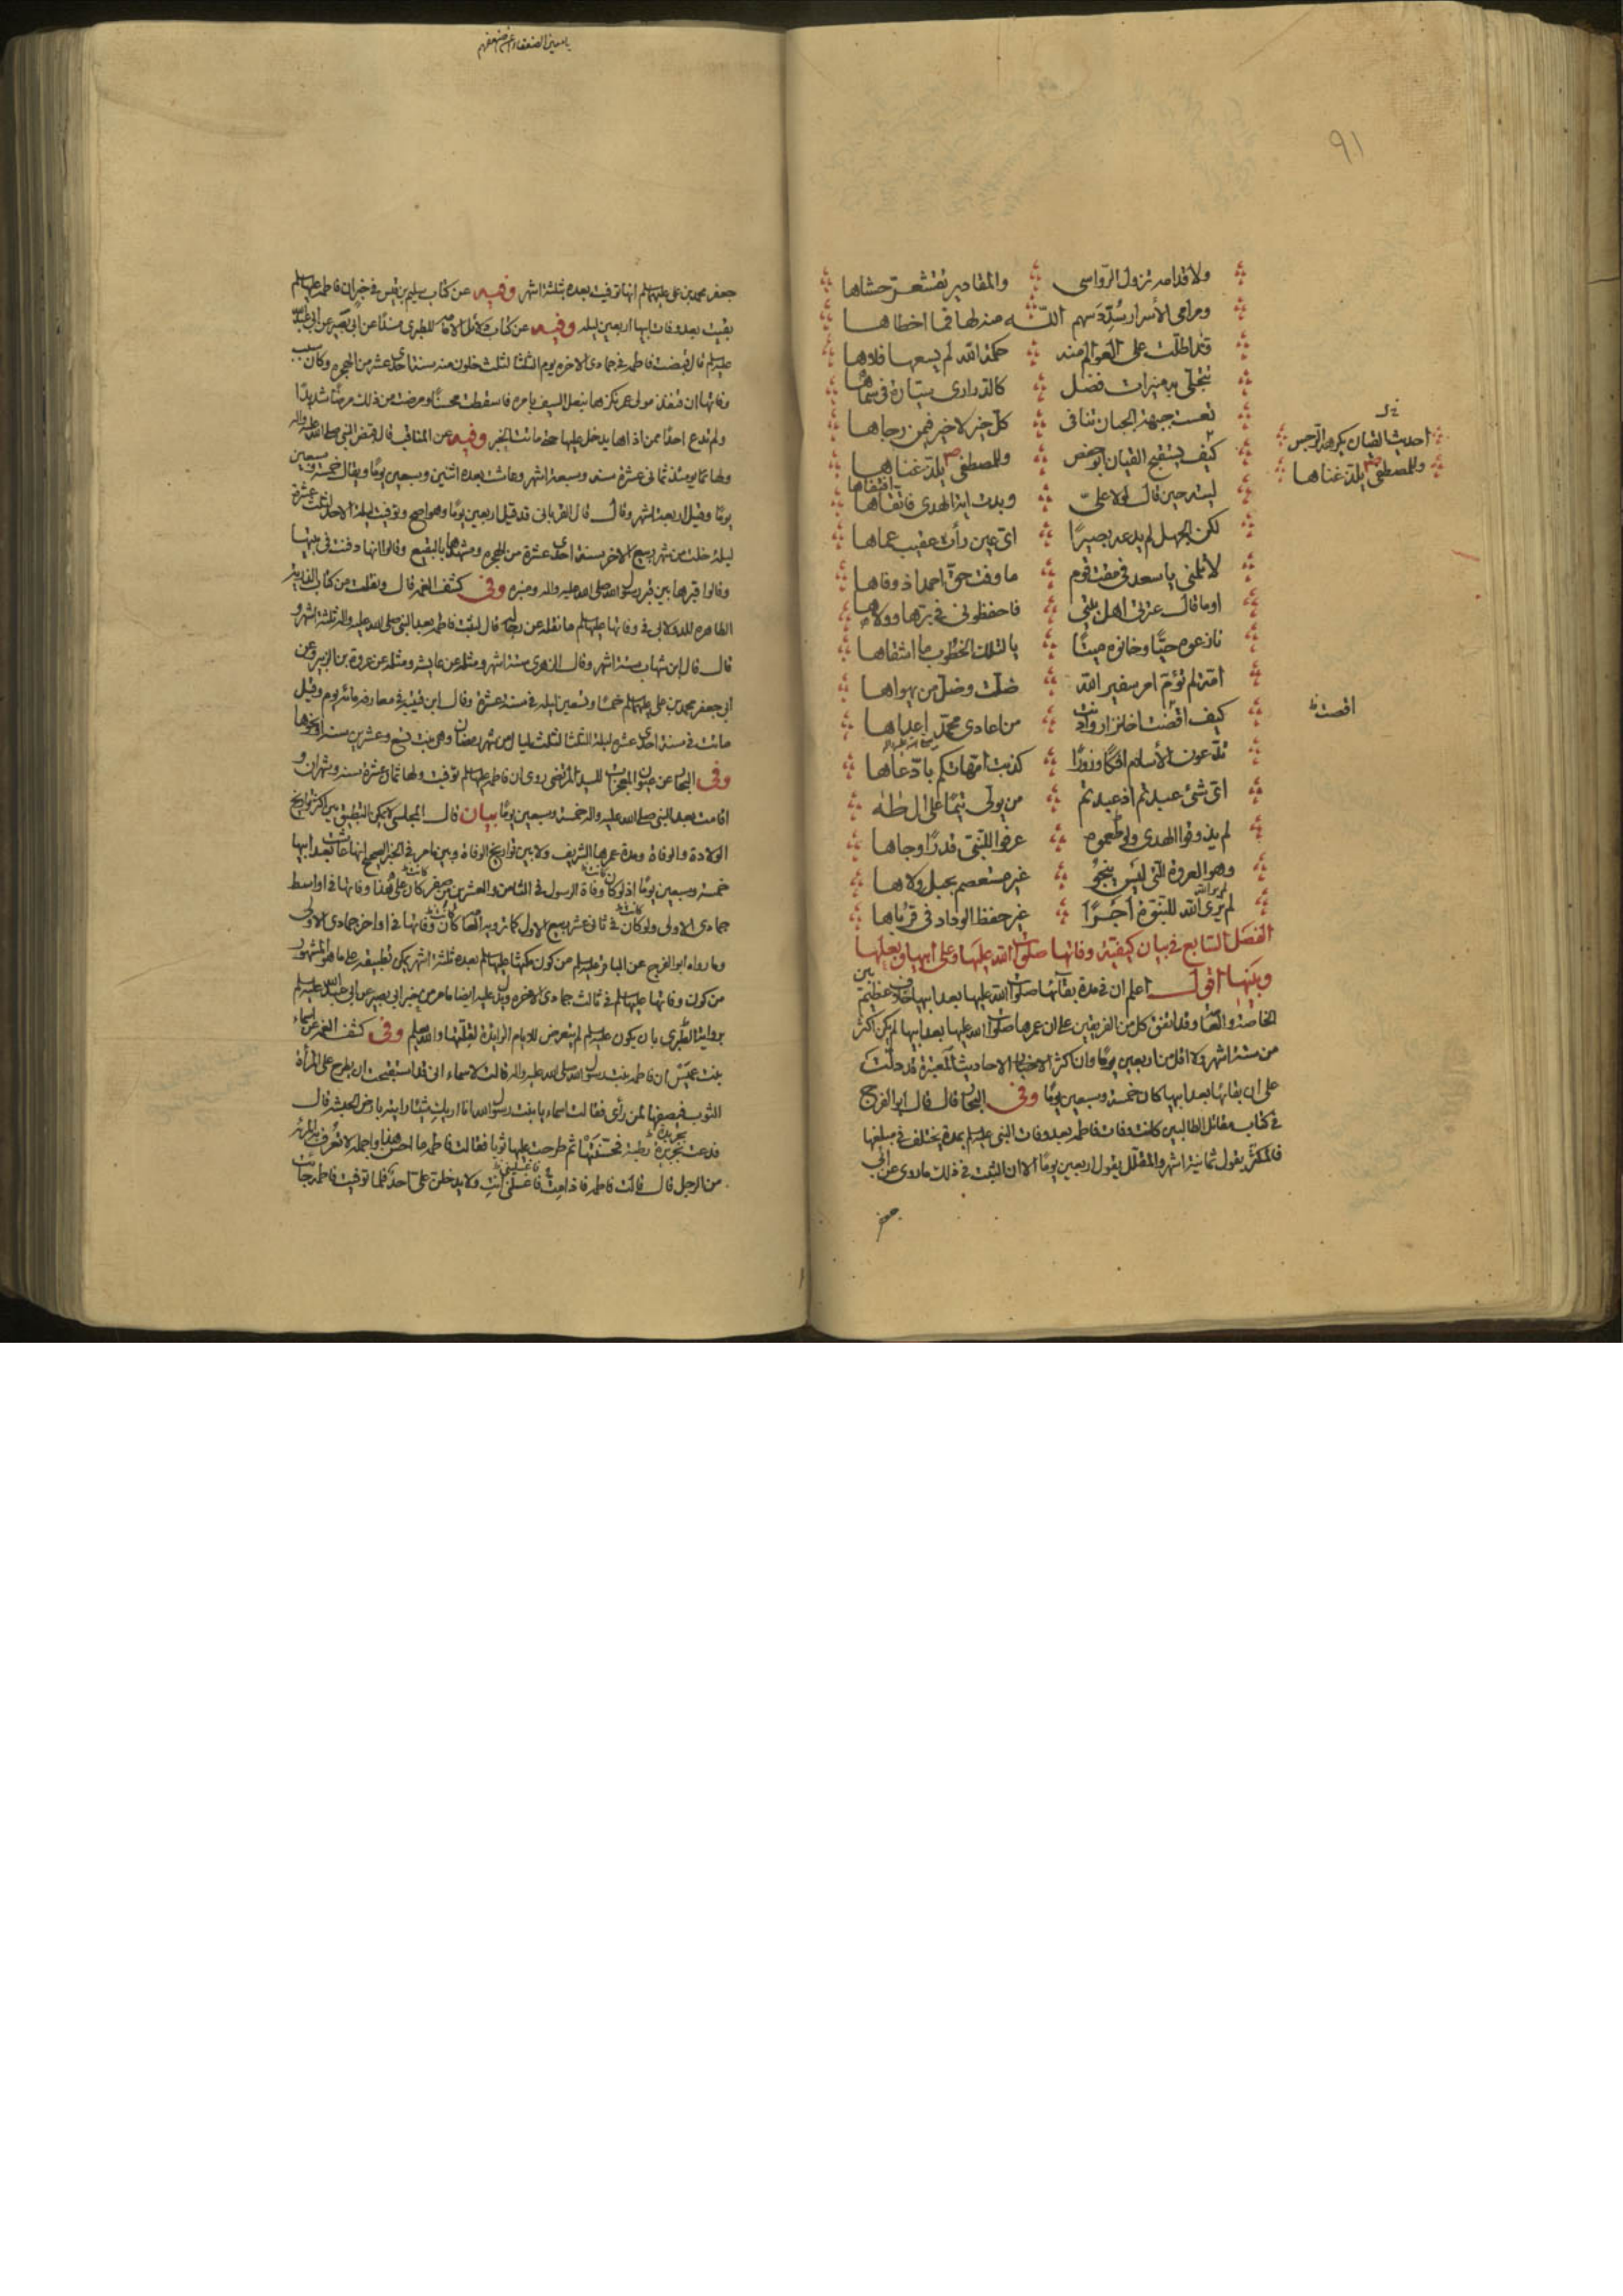 ٩١
ولاقدامه تزول الرواسى والمقادير تقشعر حشاها
ومرامى الأسرار سدد سهم اللّه منه لها فما اخطاها
قد اطلت على العوالم منه حكمة الله لم يسعها فلاها
تتجلى به منيرات فضل كالدرارى سيارة فى سماها
تعست جبهة الجبان تنافى كل خير لا خير فيمن رجاها
كيف يستقبح القيان ابو حفص وللمصطفى يلذ غناها
ليته حين قال لولا على وبدت اية الهدى فاقتفاها
لكن الجهل لم يدعه بصيرًا اى عين رأت عقيب عماها
لا تلمنى يا سعد فى مقت قوم ما وفت حق احمد اذ وفاها
اوما قال عترتى اهل بيتى فاحفظونى فى برها وولاها
نازعوه حيًّا وخانوه ميتًا يا لتلك الخطوب ما اشقاها
امة لم تؤم امر سفير الله ضلت وضل من يهواها
كيف اقصت من اعادى محمد اعداها
تدعون الأسلام افكًا وزورًا كذبت امهاتكم بادعاها
اى شئ عبدتم اذ عبدتم من يولى تيمًا على ال طه
لم يذوقوا الهدى ولو طعموه عرفوا للنبى قدرًا وجاها
وهو العروة التى ليس ينجو غير مستعصم بحبل ولاها
لم يرى الله للنبوة اجرًا غير حفظ الوداد فى قرباها
احديث القيان يكره الرجس
وللمصطفى يلذ غناها
اقصت
الفصل السابع فى بيان كيفية وفاتها صلوات الله عليها وعلى ابيها وبعلها
وبنيها اقول اعلم ان فى مدة بقائها صلوات الله عليها بعد ابيها خلاف عظيم بين
الخاصة والعامة وقد اتفق كل من الفريقين على ان عمرها صلوات الله عليها بعد ابيها لم يكن اكثر
من ستة اشهر ولا اقل من اربعين يومًا وان اكثر الاخبار الاحاديث المعتبرة قد دلت
على ان بقائها بعد ابيها كان خمسة وسبعين يومًا وفى البحار قال قال ابو الفرج
فى كتاب مقاتل الطالبين كانت وفات فاطمه بعد وفات النبى عليه السلم بمدة يختلف فى مبلغها
فالمكثر يقول ثمانية اشهر والمقلل يقول اربعين يومًا الا ان الثبت فى ذلك ما روى عن ابى
جعفر
جعفر محمد بن على عليهما السلم انها توفيت بعده بثلثة اشهر وفيه عن كتاب سليم بن قيس فى خبر ان فاطمه عليها السلم
بقيت بعد وفات ابيها اربعين ليله وفيه عن كتاب دلائل الامامه للطبرى مسندًا عن ابى بصير عن ابى عبد الله
عليه السلم قال قبضت فاطمه فى جمادى الاخره يوم الثلثا لثلث خلون منه سنة احدى عشر من الهجره وكان سبب
وفاتها ان قنفذ مولى عمر لكزها بنعل السيف بامره فاسقطت محسنًا ومرضت من ذلك مرضًا شديدًا
ولم تدع احدًا ممن اذاها يدخل عليها وفيه عن المناقب قال قبض النبى صلى الله عليه واله
ولها يومئذ ثمانى عشرة سنه وسبعة اشهر وعاشت بعده اثنين وسبعين يومًا ويقال خمسة وسبعين
يومًا وقيل اربعة اشهر وقال القربانى قد قيل اربعين يومًا وهو اصح وتوفيت ليلة الاحد لثلث عشرة
ليله خلت من شهر ربيع الاخر سنة احدى عشرة من الهجره ومشهدها بالبقيع وقالوا انها دفنت فى بيتها
وقالوا قبرها بين قبر رسول الله صلى الله عليه واله ومنبره وفى كشف الغمه قال ونقلت من كتاب الذرية
الطاهره للدولابى فى وفاتها عليها السلم ما نقله عن رجاله قال لبثت فاطمه بعد النبى صلى الله عليه واله ثلثة اشهر و
قال قال ابن شهاب ستة اشهر وقال الزهرى ستة اشهر ومثله عن عايشه ومثله عن عروة بن الزبير وعن
ابى جعفر محمد بن على عليهما السلم خمسًا وتسعين ليله فى سنة عشرة وقال ابن قتيبة فى معارفه مائة يوم وقيل
ماتت فى سنة احدى عشره ليلة الثلثا لثلث ليال من شهر رمضان وهى بنت تسع وعشرين سنة او نحوها
وفى البحار عن عيون المعجزات للسيد المرتضى روى ان فاطمه عليها السلم توفيت ولها ثمان عشرة سنه وشهران و
اقامت بعد النبى صلى الله عليه واله خمسة وسبعين يومًا بيان قال المجلسى لا يمكن التطبيق بين اكثر تواريخ
الولادة والوفاة ومدة عمرها الشريف ولا بين تواريخ الوفاة وبين ما مر فى الخبر الصحيح انها عاشت بعد ابيها
خمسة وسبعين يومًا اذ لو كان وفاة الرسول فى الثامن والعشرين من صفر كان على هذا وفاتها فى اواسط
جمادى الاولى ولو كان فى ثانى عشر ربيع الاول كما ترويه العامة كان وفاتها فى اواخر جمادى الاولى
وما رواه ابو الفرج عن الباقر عليه السلم من كون مكثها عليها السلم بعده ثلثة اشهر يمكن تطبيقه على ما هو المشهور
من كون وفاتها عليها السلم فى ثالث جمادى الاخره ويدل عليه ايضا ما مر من خبر ابى بصير عن ابى عبد الله عليه السلم
برواية الطبرى بان يكون عليه السلم لم يتعرض للايام الزايدة لقلتها والله يعلم وفى كشف الغمه عن اسماء
بنت عميس ان فاطمه بنت رسول الله صلى الله عليه واله قالت لاسماء انى قد استقبحت ان يطرح على المرأة
الثوب فيصفها لمن رأى فقالت اسماء يا بنت رسول الله انا اريك شيئا رايته بارض الحبشه قال
فدعت بجريدة رطبة فحنتها ثم طرحت عليها ثوبا فقالت فاطمه ما احسن هذا واجمله لا تعرف به المرئة
من الرجل قال قالت فاطمه فاذا مت فاغسلنى انت ولا يدخلن على احد فلما توفيت فاطمه جائت